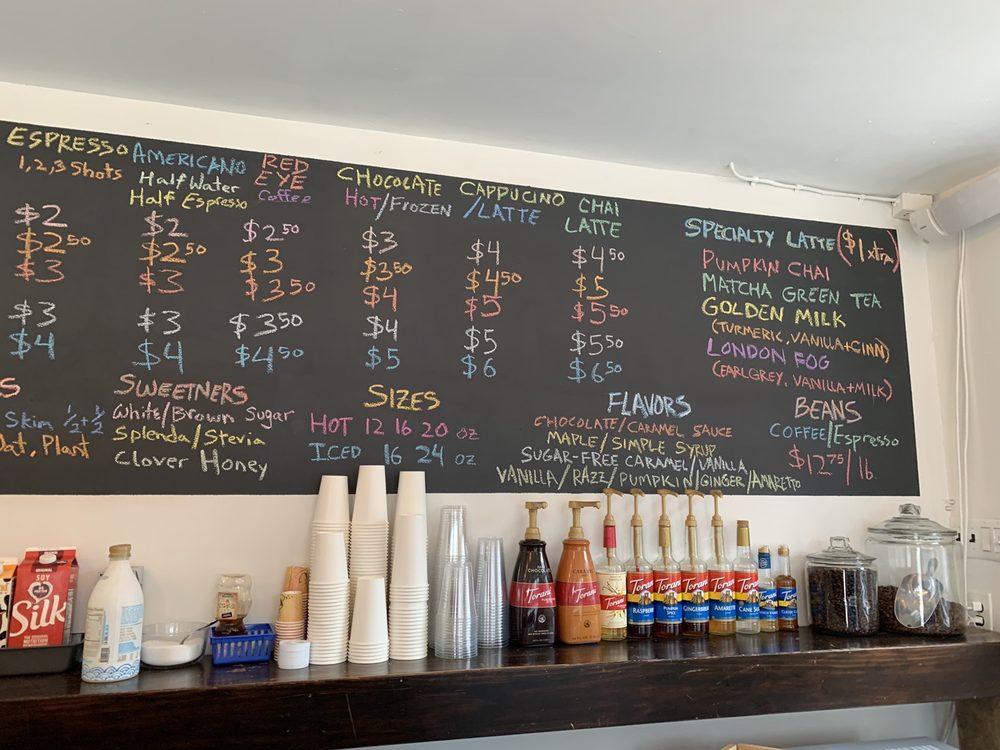 ESPRESSO
1, 2, 3 Shots
$2
$2.50
$3
$3
$4
AMERICANO
Half Water
Half Espresso
$2
$2.50
$3
$3
$4
RED
EYE
Coffee
$2.50
$3
$3.50
$3.50
$4.50
CHOCOLATE
HOT/FROZEN
$3
$3.50
$4
$4
$5
CAPPUCINO
/LATTE
$4
$4.50
$5
$5
$6
CHAI
LATTE
$4.50
$5
$5.50
$5.50
$6.50
SPECIALTY LATTE ($1 xtra)
PUMPKIN CHAI
MATCHA GREEN TEA
GOLDEN MILK
(TURMERIC, VANILLA + CINN)
LONDON FOG
(EARL GREY, VANILLA + MILK)
S
Skim 1/2 + 1/2
Oat, Plant
SWEETNERS
White/Brown Sugar
Splenda/Stevia
Clover Honey
SIZES
HOT 12 16 20 oz
ICED 16 24 oz
FLAVORS
CHOCOLATE/CARAMEL SAUCE
MAPLE/SIMPLE SYRUP
SUGAR-FREE CARAMEL/VANILLA
VANILLA/RAZZ/PUMPKIN/GINGER/AMARETTO
BEANS
COFFEE/Espresso
$12.75/lb
ORIGINAL
SOY
Silk
CHOCOLATE
Torani
CARAMEL
Torani
Torani
Torani
RASPBERRY
Torani
PUMPKIN SPICE
Torani
GINGERBREAD
Torani
AMARETTO
Torani
CANE
Torani
Torani